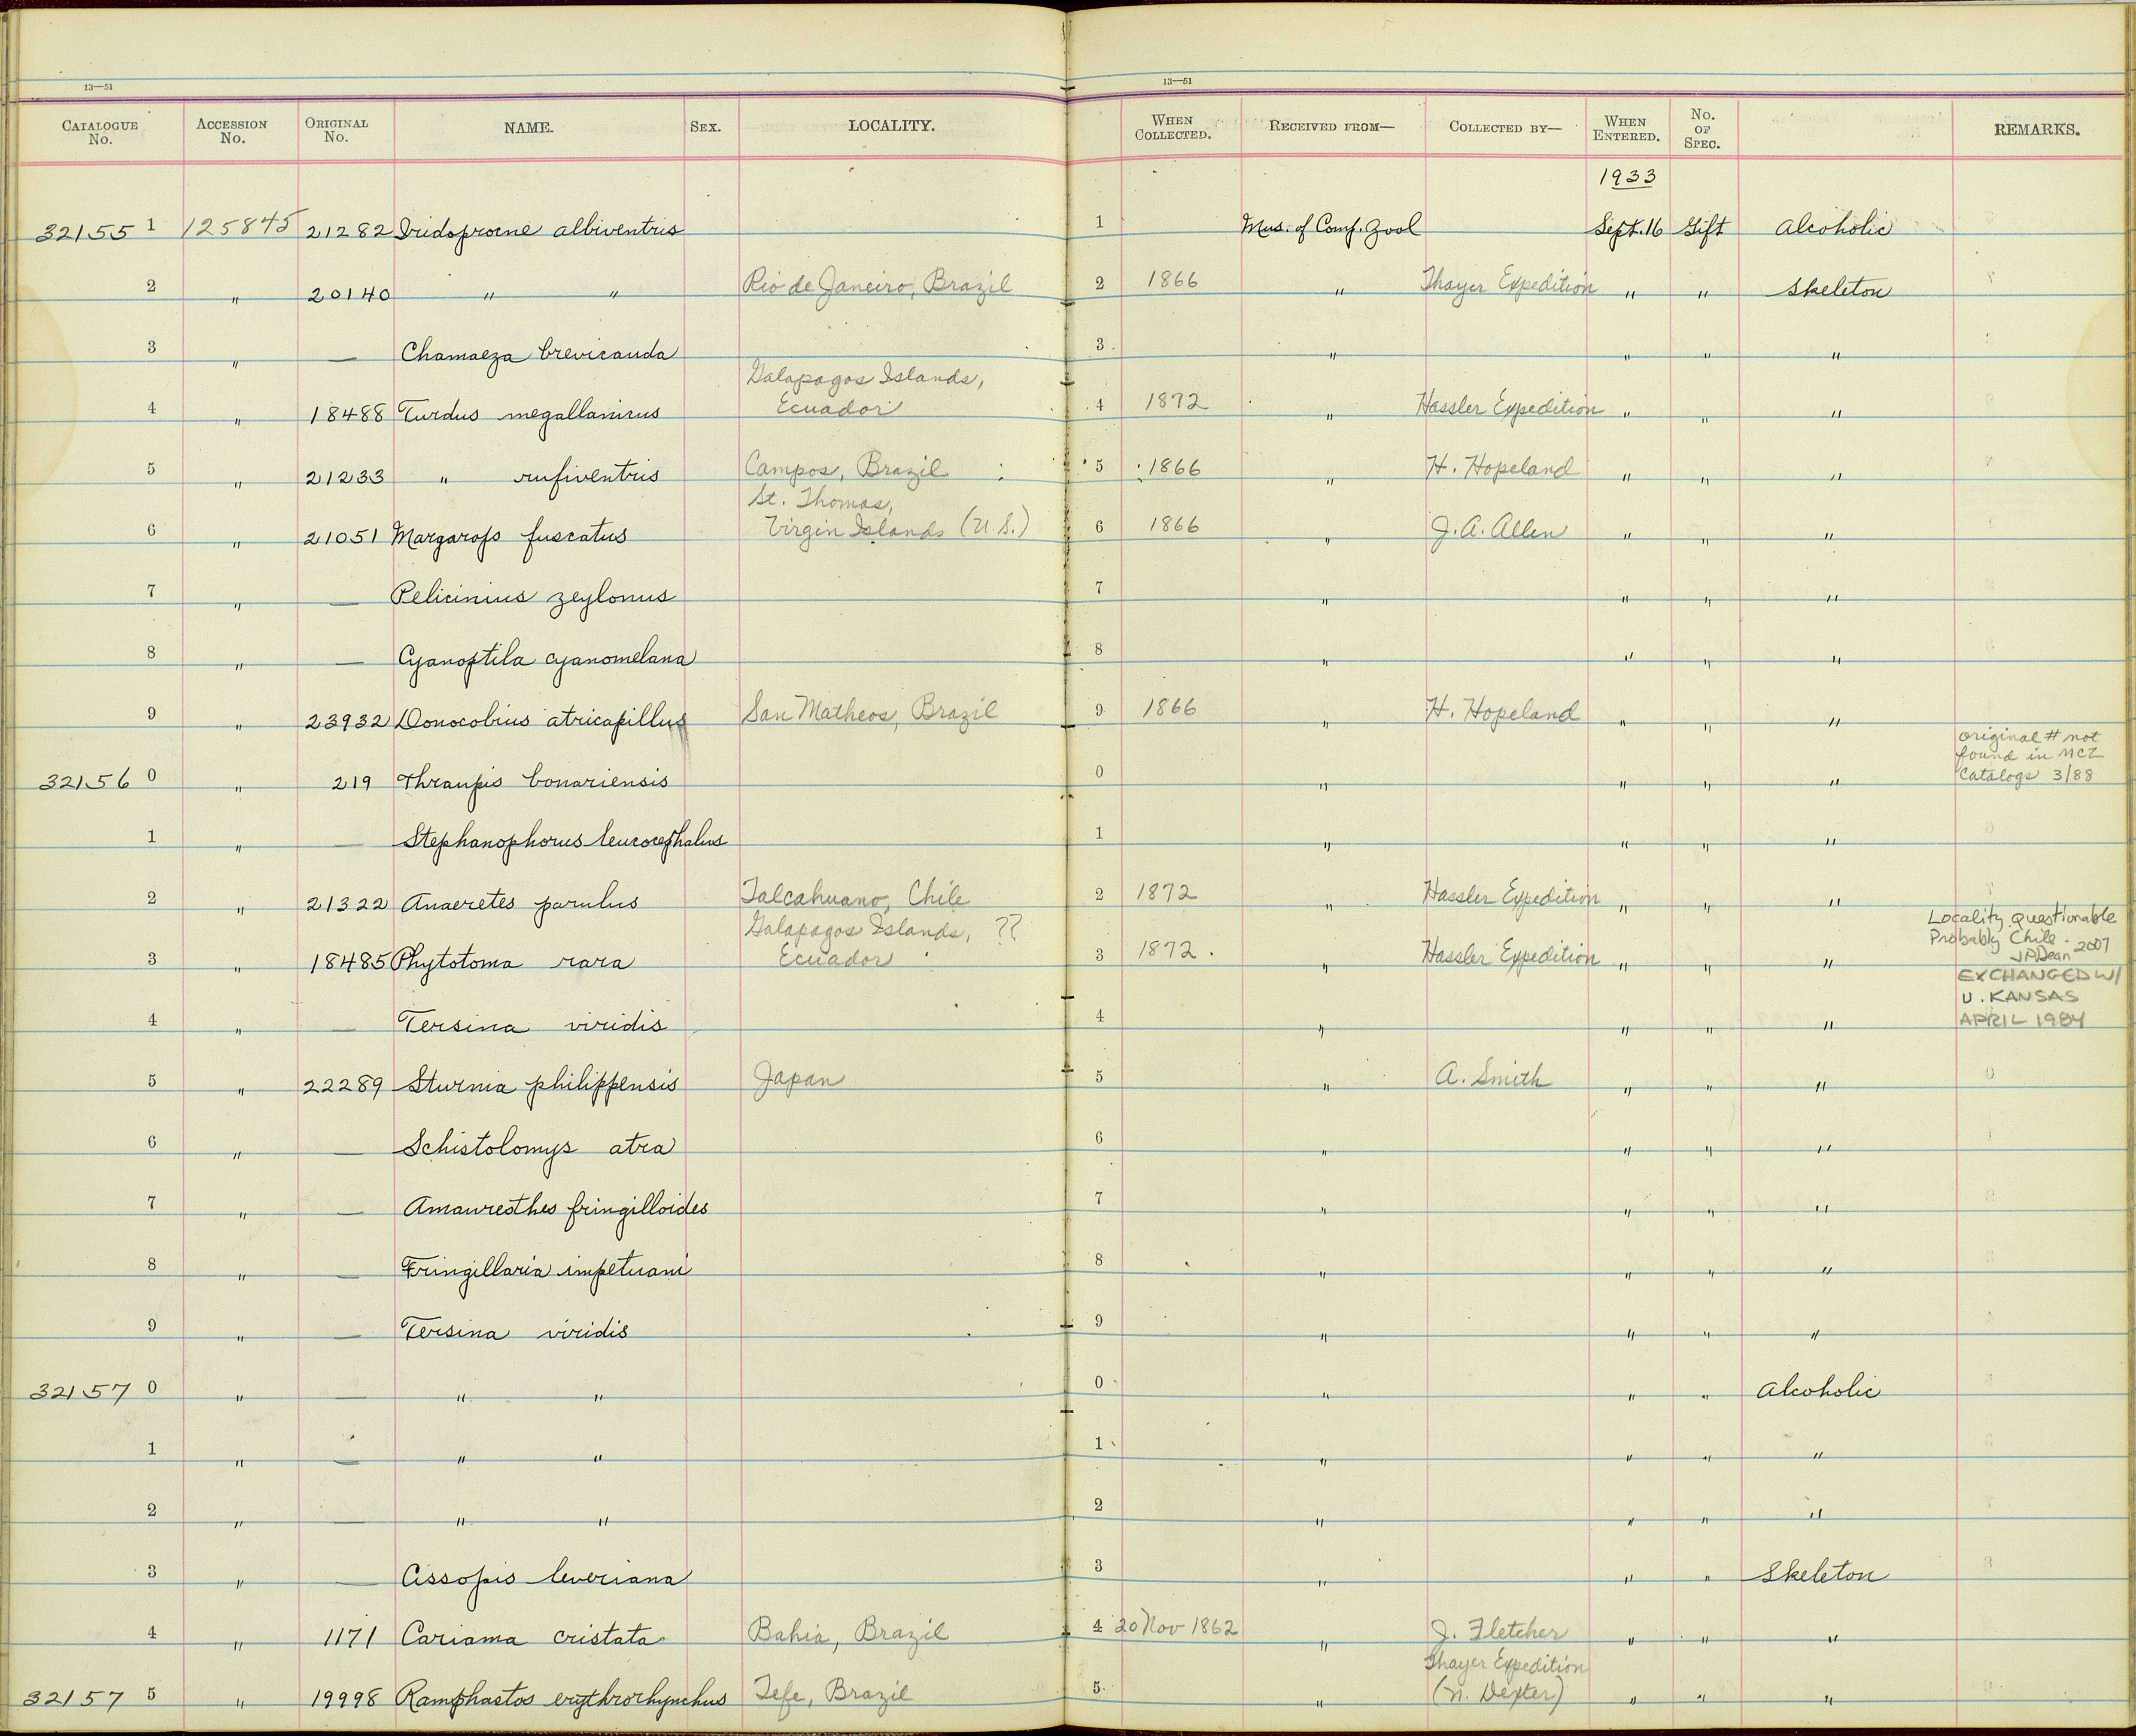 13—51 13—51
CATALOGUE No. ACCESSION No. ORIGINAL No. NAME. SEX. LOCALITY. WHEN COLLECTED. RECEIVED FROM— COLLECTED BY— WHEN ENTERED. No. OF SPEC. REMARKS.
1933
32155 1 125845 21282 Iridoprocne albiventris 1 Mus. of Comp. Zool Sept. 16 Gift Alcoholic
2 " 20140 " " Rio de Janeiro, Brazil 2 1866 " Thayer Expedition " " Skeleton
3 " — Chamaeza brevicauda 3 " " " "
Galapagos Islands,
4 " 18488 Turdus megallanicus Ecuador 4 1872 " Hassler Expedition " " "
5 " 21233 " rufiventris Campos, Brazil 5 1866 " H. Hopeland " " "
St. Thomas,
6 " 21051 Margarops fuscatus Virgin Islands (U.S.) 6 1866 " J. A. Allen " " "
7 " — Pelicinius zeylonus 7 " " " "
8 " — Cyanoptila cyanomelana 8 " " " "
9 " 23932 Donocobius atricapillus San Matheos, Brazil 9 1866 " H. Hopeland " " "
original # not
found in MCZ
32156 0 " 219 Thraupis bonariensis 0 " " " " Catalogs 3/88
1 " — Stephanophorus leucocephalus 1 " " " "
2 " 21322 Anaeretes parulus Talcahuano, Chile 2 1872 " Hassler Expedition " " "
Galapagos Islands, ?? Locality questionable
Probably Chile.
3 " 18485 Phytotoma rara Ecuador 3 1872 " Hassler Expedition " " " JPDean 2007
EXCHANGED W/
U. KANSAS
4 " — Tersina viridis 4 " " " " APRIL 1984
5 " 22289 Sturnia philippensis Japan 5 " A. Smith " " "
6 " — Schistolomys atra 6 " " " "
7 " — Amauresthes fringilloides 7 " " " "
8 " — Fringillaria impetuani 8 " " " "
9 " — Tersina viridis 9 " " " "
32157 0 " — " " 0 " " " Alcoholic
1 " — " " 1 " " " "
2 " — " " 2 " " " "
3 " — Cissopis leveriana 3 " " " Skeleton
4 " 1171 Cariama cristata Bahia, Brazil 4 20 Nov 1862 " J. Fletcher " " "
Thayer Expedition
32157 5 " 19998 Ramphastos erythrorhynchus Tefe, Brazil 5 " (N. Dexter) " " "